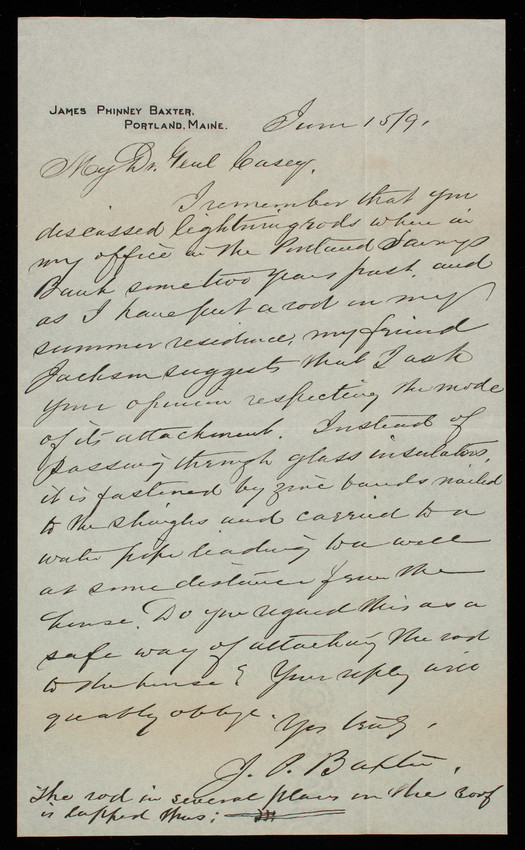 JAMES PHINNEY BAXTER,
PORTLAND, MAINE.
June 15/91.
My Dr. Genl Casey,
I remember that you
discussed lightning rods when in
my office in the Portland Savings
Bank some two years past, and
as I have put a rod on my
summer residence, my friend
Jackson suggests that I ask
your opinion respecting the mode
of its attachment. Instead of
passing through glass insulators,
it is fastened by zinc bands nailed
to the shingles and carried to a
water pipe leading to a well
at some distance from the
house. Do you regard this as a
safe way of attaching the rod
to the house? Your reply will
greatly oblige.
Yrs truly,
J. P. Baxter.
The rod in several places on the roof
is lapped thus: